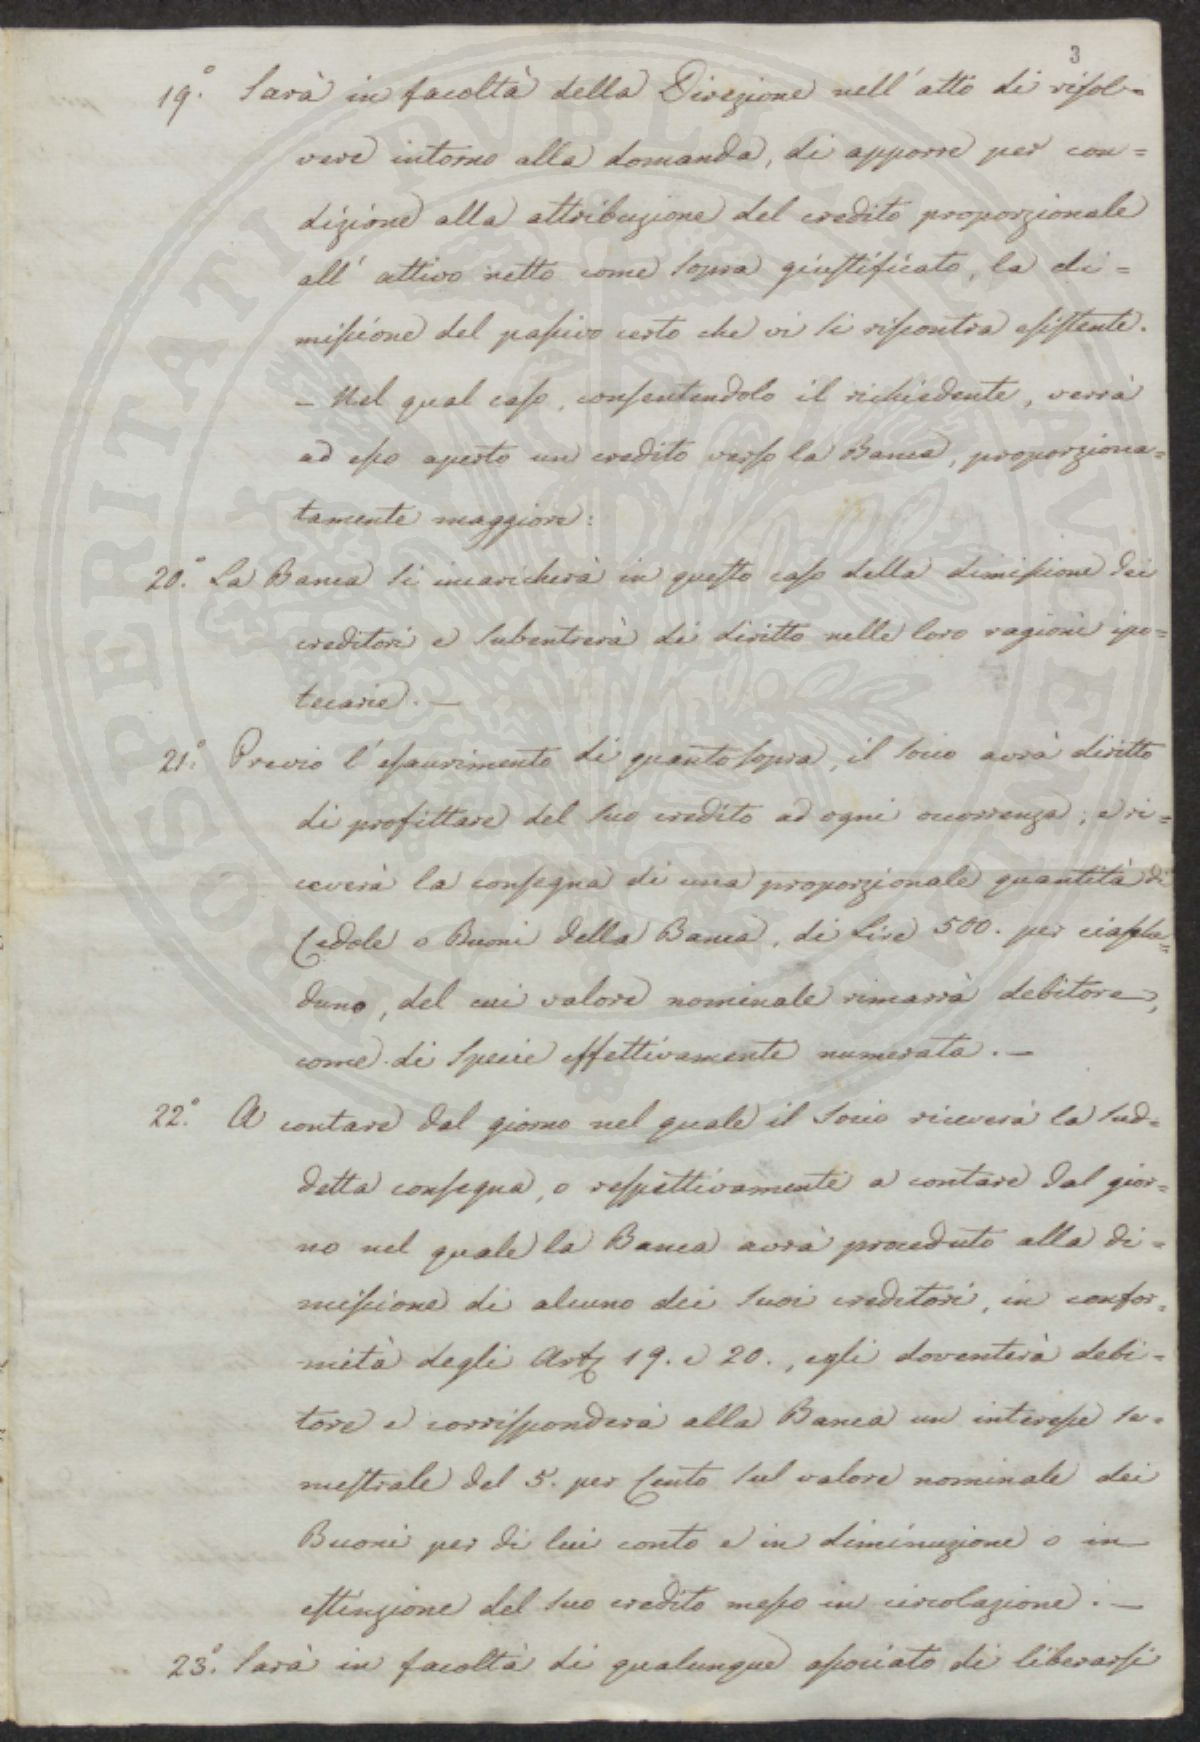 3
19.° Sarà in facoltà della Direzione nell'atto di risol=
vere intorno alla domanda, di apporre per con=
dizione alla attribuzione del credito proporzionale
all'attivo netto come sopra giustificato, la di=
missione del passivo certo che vi si riscontra esistente.
– Nel qual caso, consentendolo il richiedente, verrà
ad esso aperto un credito verso la Banca, proporziona=
tamente maggiore:
20.° La Banca si incaricherà in questo caso della dimissione dei
creditori e subentrerà di diritto nelle loro ragioni ipo=
tecarie. —
21.° Previo l'esaurimento di quanto sopra, il socio avrà diritto
di profittare del suo credito ad ogni occorrenza; e ri=
ceverà la consegna di una proporzionale quantità di
Cedole o Buoni della Banca, di Lire 500. per ciasche=
duno, del cui valore nominale rimarrà debitore,
come di specie effettivamente numerata. —
22.° A contare dal giorno nel quale il Socio riceverà la sud=
detta consegna, o respettivamente a contare dal gior=
no nel quale la Banca avrà proceduto alla di=
missione di alcuno dei suoi creditori, in confor=
mità degli Art. 19. e 20., egli doventerà debi=
tore e corrisponderà alla Banca un interesse se=
mestrale del 5. per Cento sul valore nominale dei
Buoni per di lui conto e in diminuzione o in
estinzione del suo credito messo in circolazione. —
23.° Sarà in facoltà di qualunque associato di liberarsi
PROSPERITATI PVBLICAE AVGENDAE